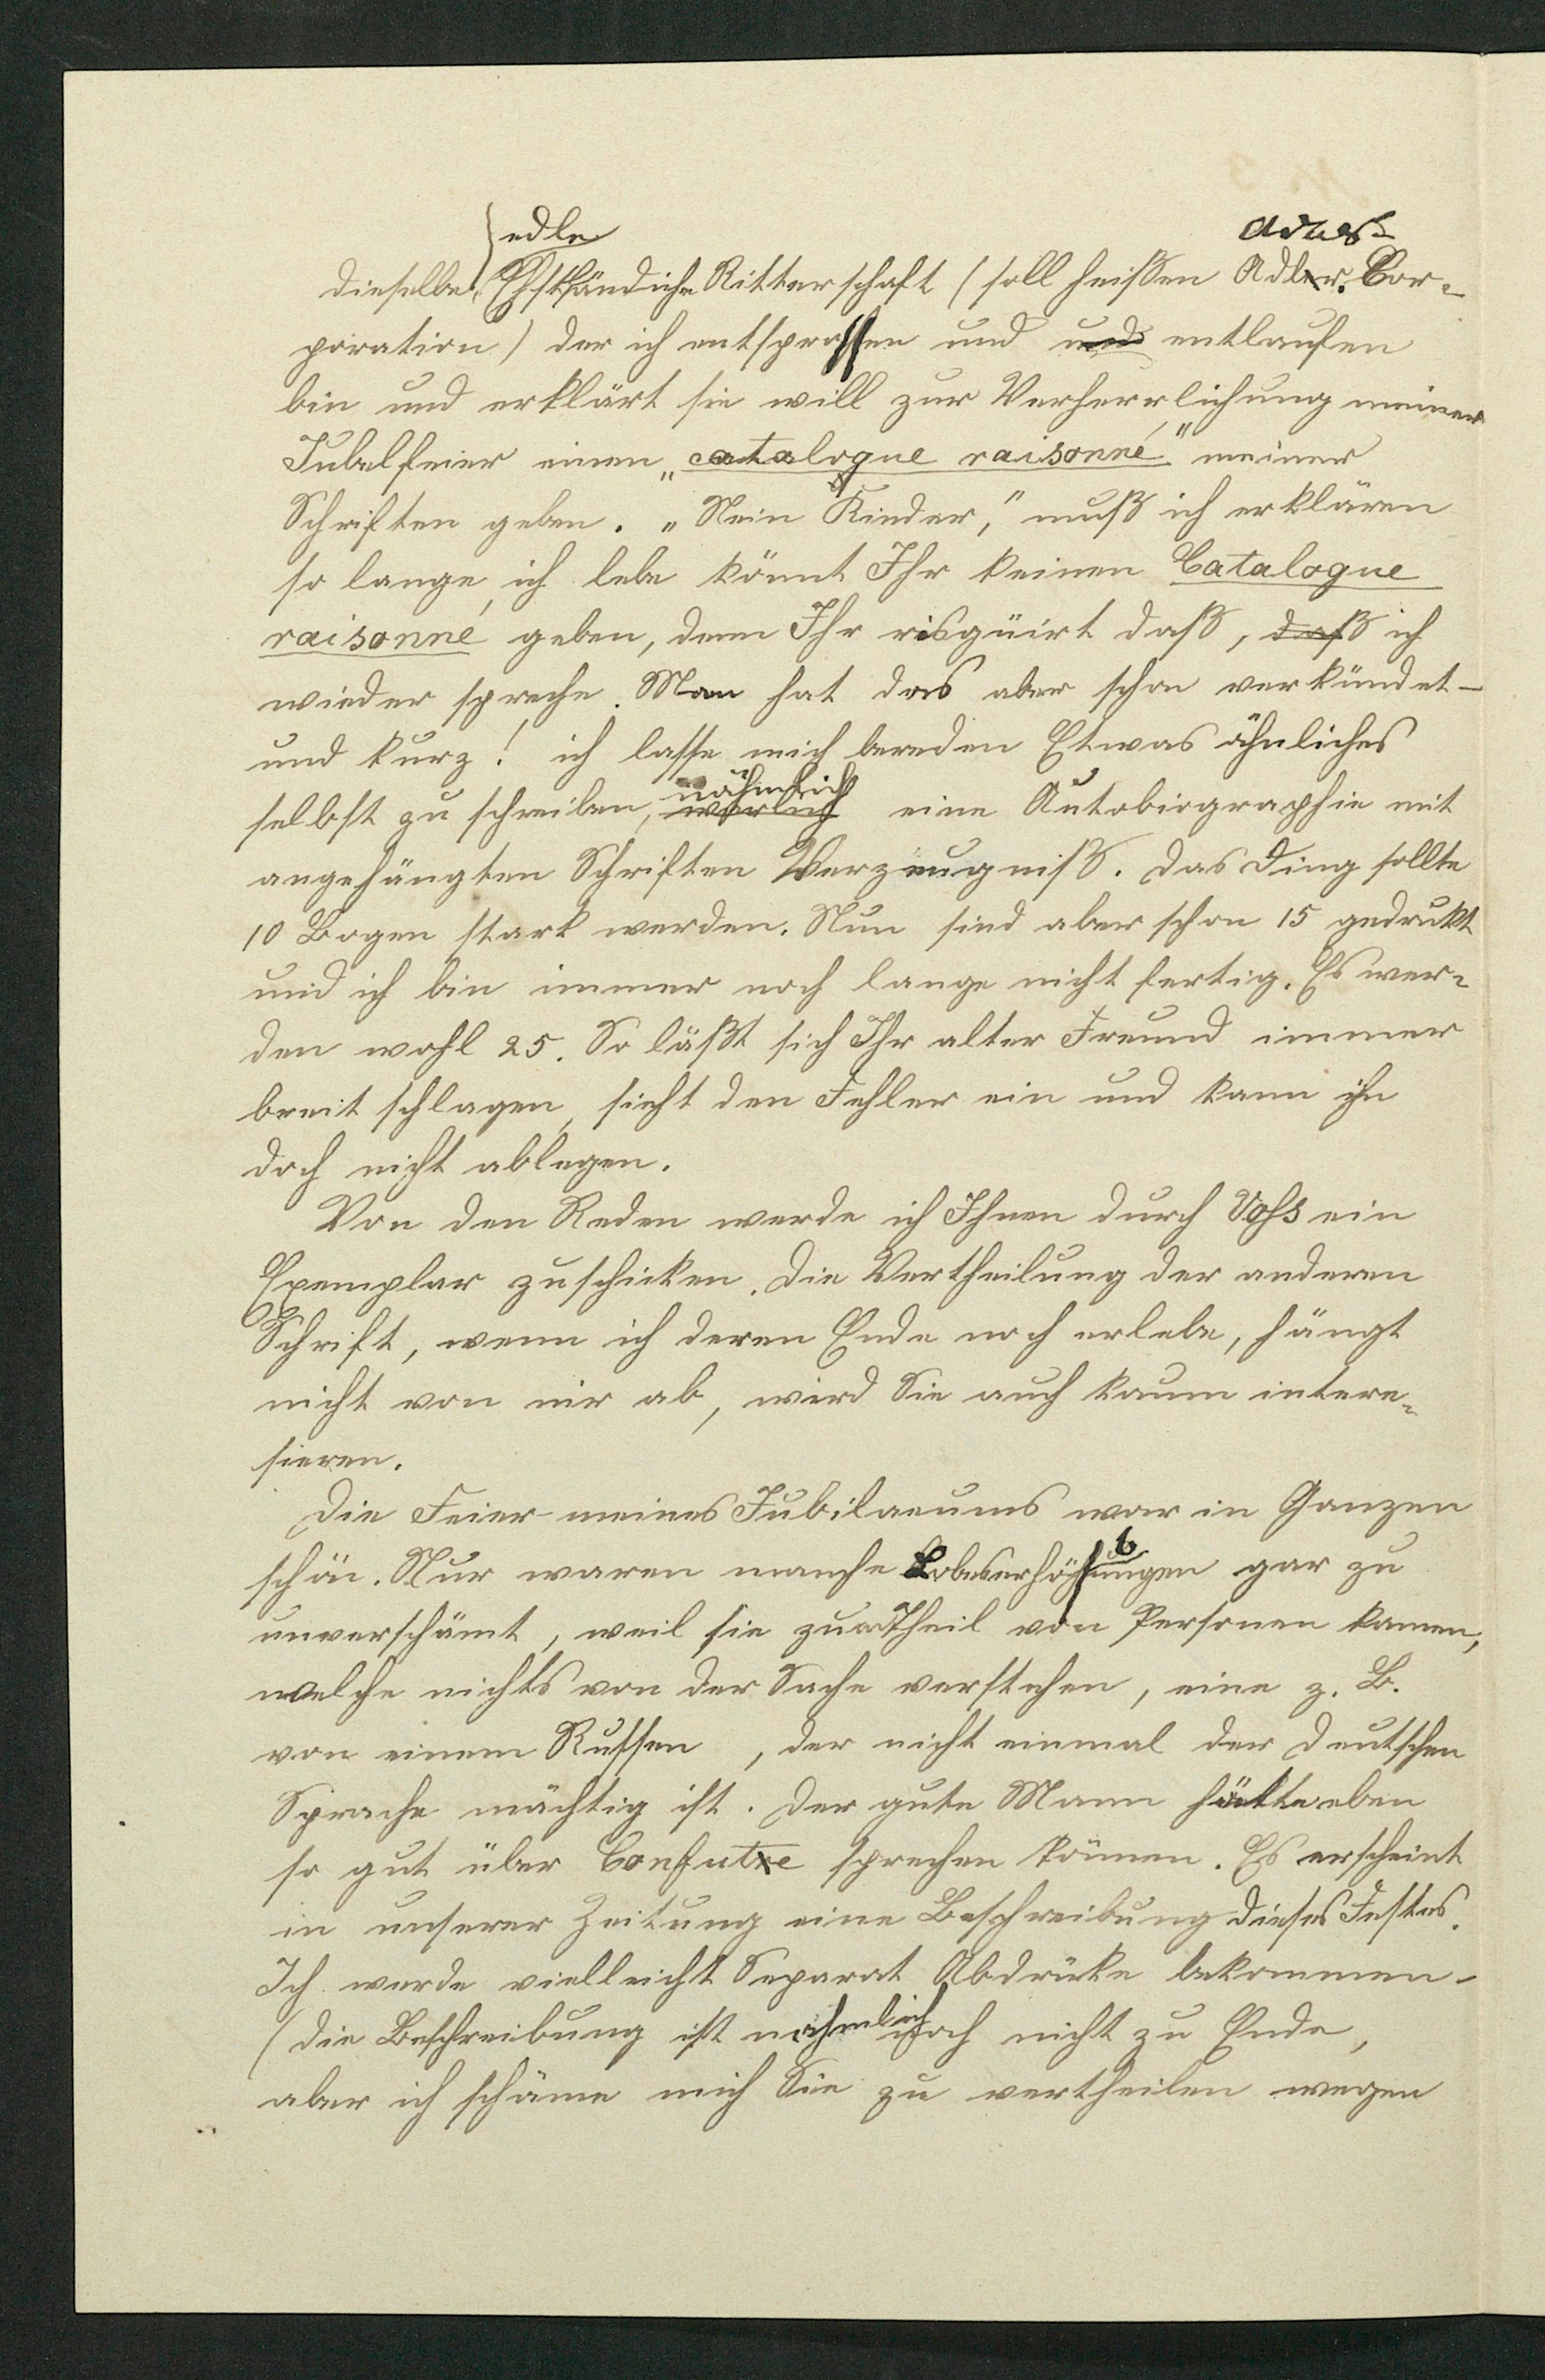 edle Adels-
dieselbe Ehstländiche Ritterschaft (soll heißen Adler. Cor-
poration) der ich entsprossen und und entlaufen
bin und erklärt sie will zur Verherrlichung meiner
Jubelfeier einen „catalogue raisonné" meiner
Schriften geben. „Nein Kinder," muß ich erklären
so lange ich lebe könnt Ihr keinen Catalogue
raisonné geben, denn Ihr risquirt daß, daß ich
wieder spreche. Man hat das aber schon verkündet –
und kurz! ich lasse mich bereden Etwas ähnliches
nähmlich
selbst zu schreiben, warlich eine Autobiographie mit
angehängten Schriften Verzeugniß. Das Ding sollte
10 Bogen stark werden. Nun sind aber schon 15 gedrukt
und ich bin immer noch lange nicht fertig. Es wer-
den wohl 25. So läßt sich Ihr alter Freund immer
breit schlagen, sieht den Fehler ein und kann ihn
doch nicht ablegen.
Von den Reden werde ich Ihnen durch Voss ein
Exemplar zuschicken. Die Vertheilung der anderen
Schrift, wenn ich deren Ende noch erlebe, hängt
nicht von mir ab, wird Sie auch kaum intere-
sieren.
Die Feier meines Jubilaeums war in Ganzen
b
schön. Nur waren manche Lobeserhöhungen gar zu
unverschämt, weil sie zum Theil von Personen kamen,
welche nichts von der Sache verstehen, eine z. B.
von einem Russen , der nicht einmal der deutschen
Sprache mächtig ist. Der gute Mann hätte eben
so gut über Confutxe sprechen können. Es erscheint
in unserer Zeitung eine Beschreibung dieses Festes.
Ich werde vielleicht Separat Abdrücke bekommen –
(die Beschreibung ist nähmlich noch nicht zu Ende,
aber ich schäme mich Sie zu vertheilen wegen